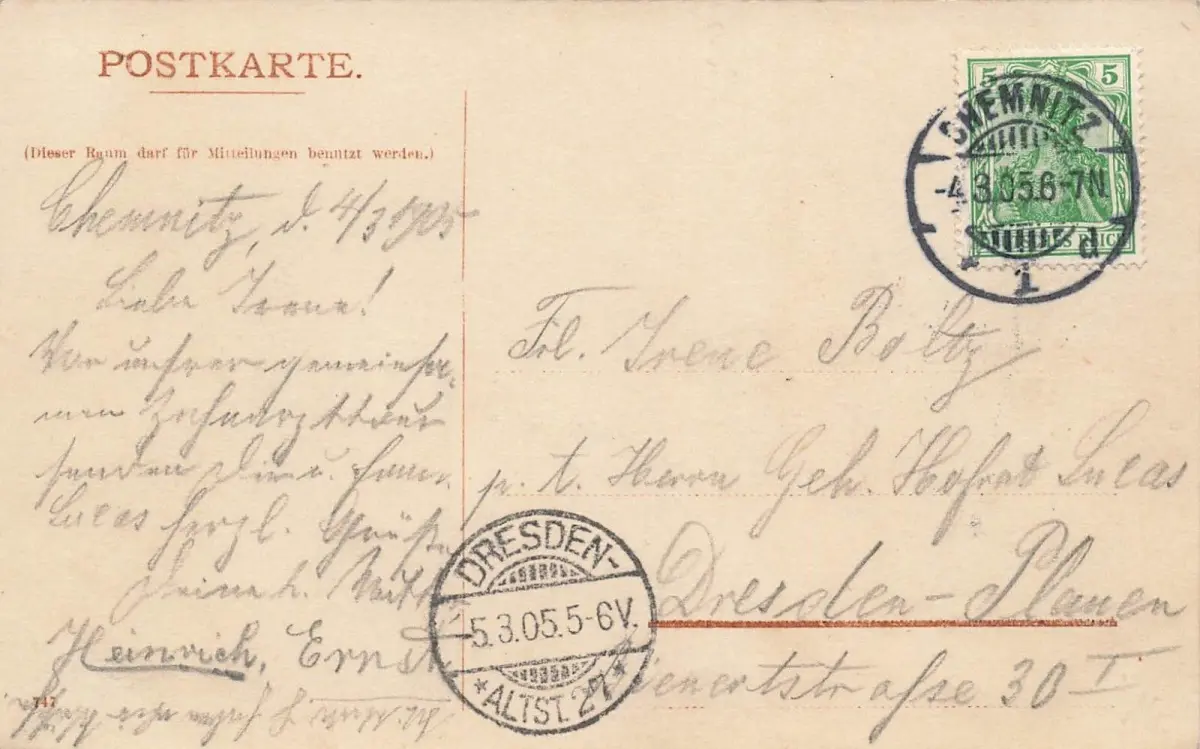 POSTKARTE.
(Dieser Raum darf für Mitteilungen benutzt werden.)
Chemnitz, d. 4/3 1905
Liebe Irene!
Von unsrer gemeinsa-
men Zahnarzttour
senden Dir u. Fam.
Lucas herzl. Grüße
Deine l. Mutter
Heinrich, Ernst
747
5 5
REICH
CHEMNITZ
-4.3.05.6-7N.
* 1 d
Frl. Irene Boltz
p. t. Herrn Geh. Hofrat Lucas
Dresden-Plauen
Bienertstraße 30 I
DRESDEN-
5.3.05.5-6V.
*ALTST. 27*